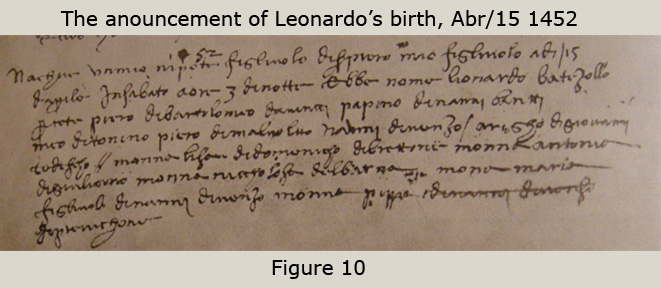 The anouncement of Leonardo's birth, Abr/15 1452
1452
Nacque unmio nipote figliuolo di ser piero mio figliuolo adi /15
daprile in sabato aore 3 dinotte Ebbe nome lionardo batezollo
prete piero dibartolomeo davinci papino dinanni banti
meo ditonino piero dimalvolto nanni divenzo / arigho digiovanni
todescho // monna lisa didomenicho dibrettone monna antonia
digiuliano monna nicholosa delbarna mona maria
figliuola dinanni divenzo monna pippa
diprevichone
Figure 10